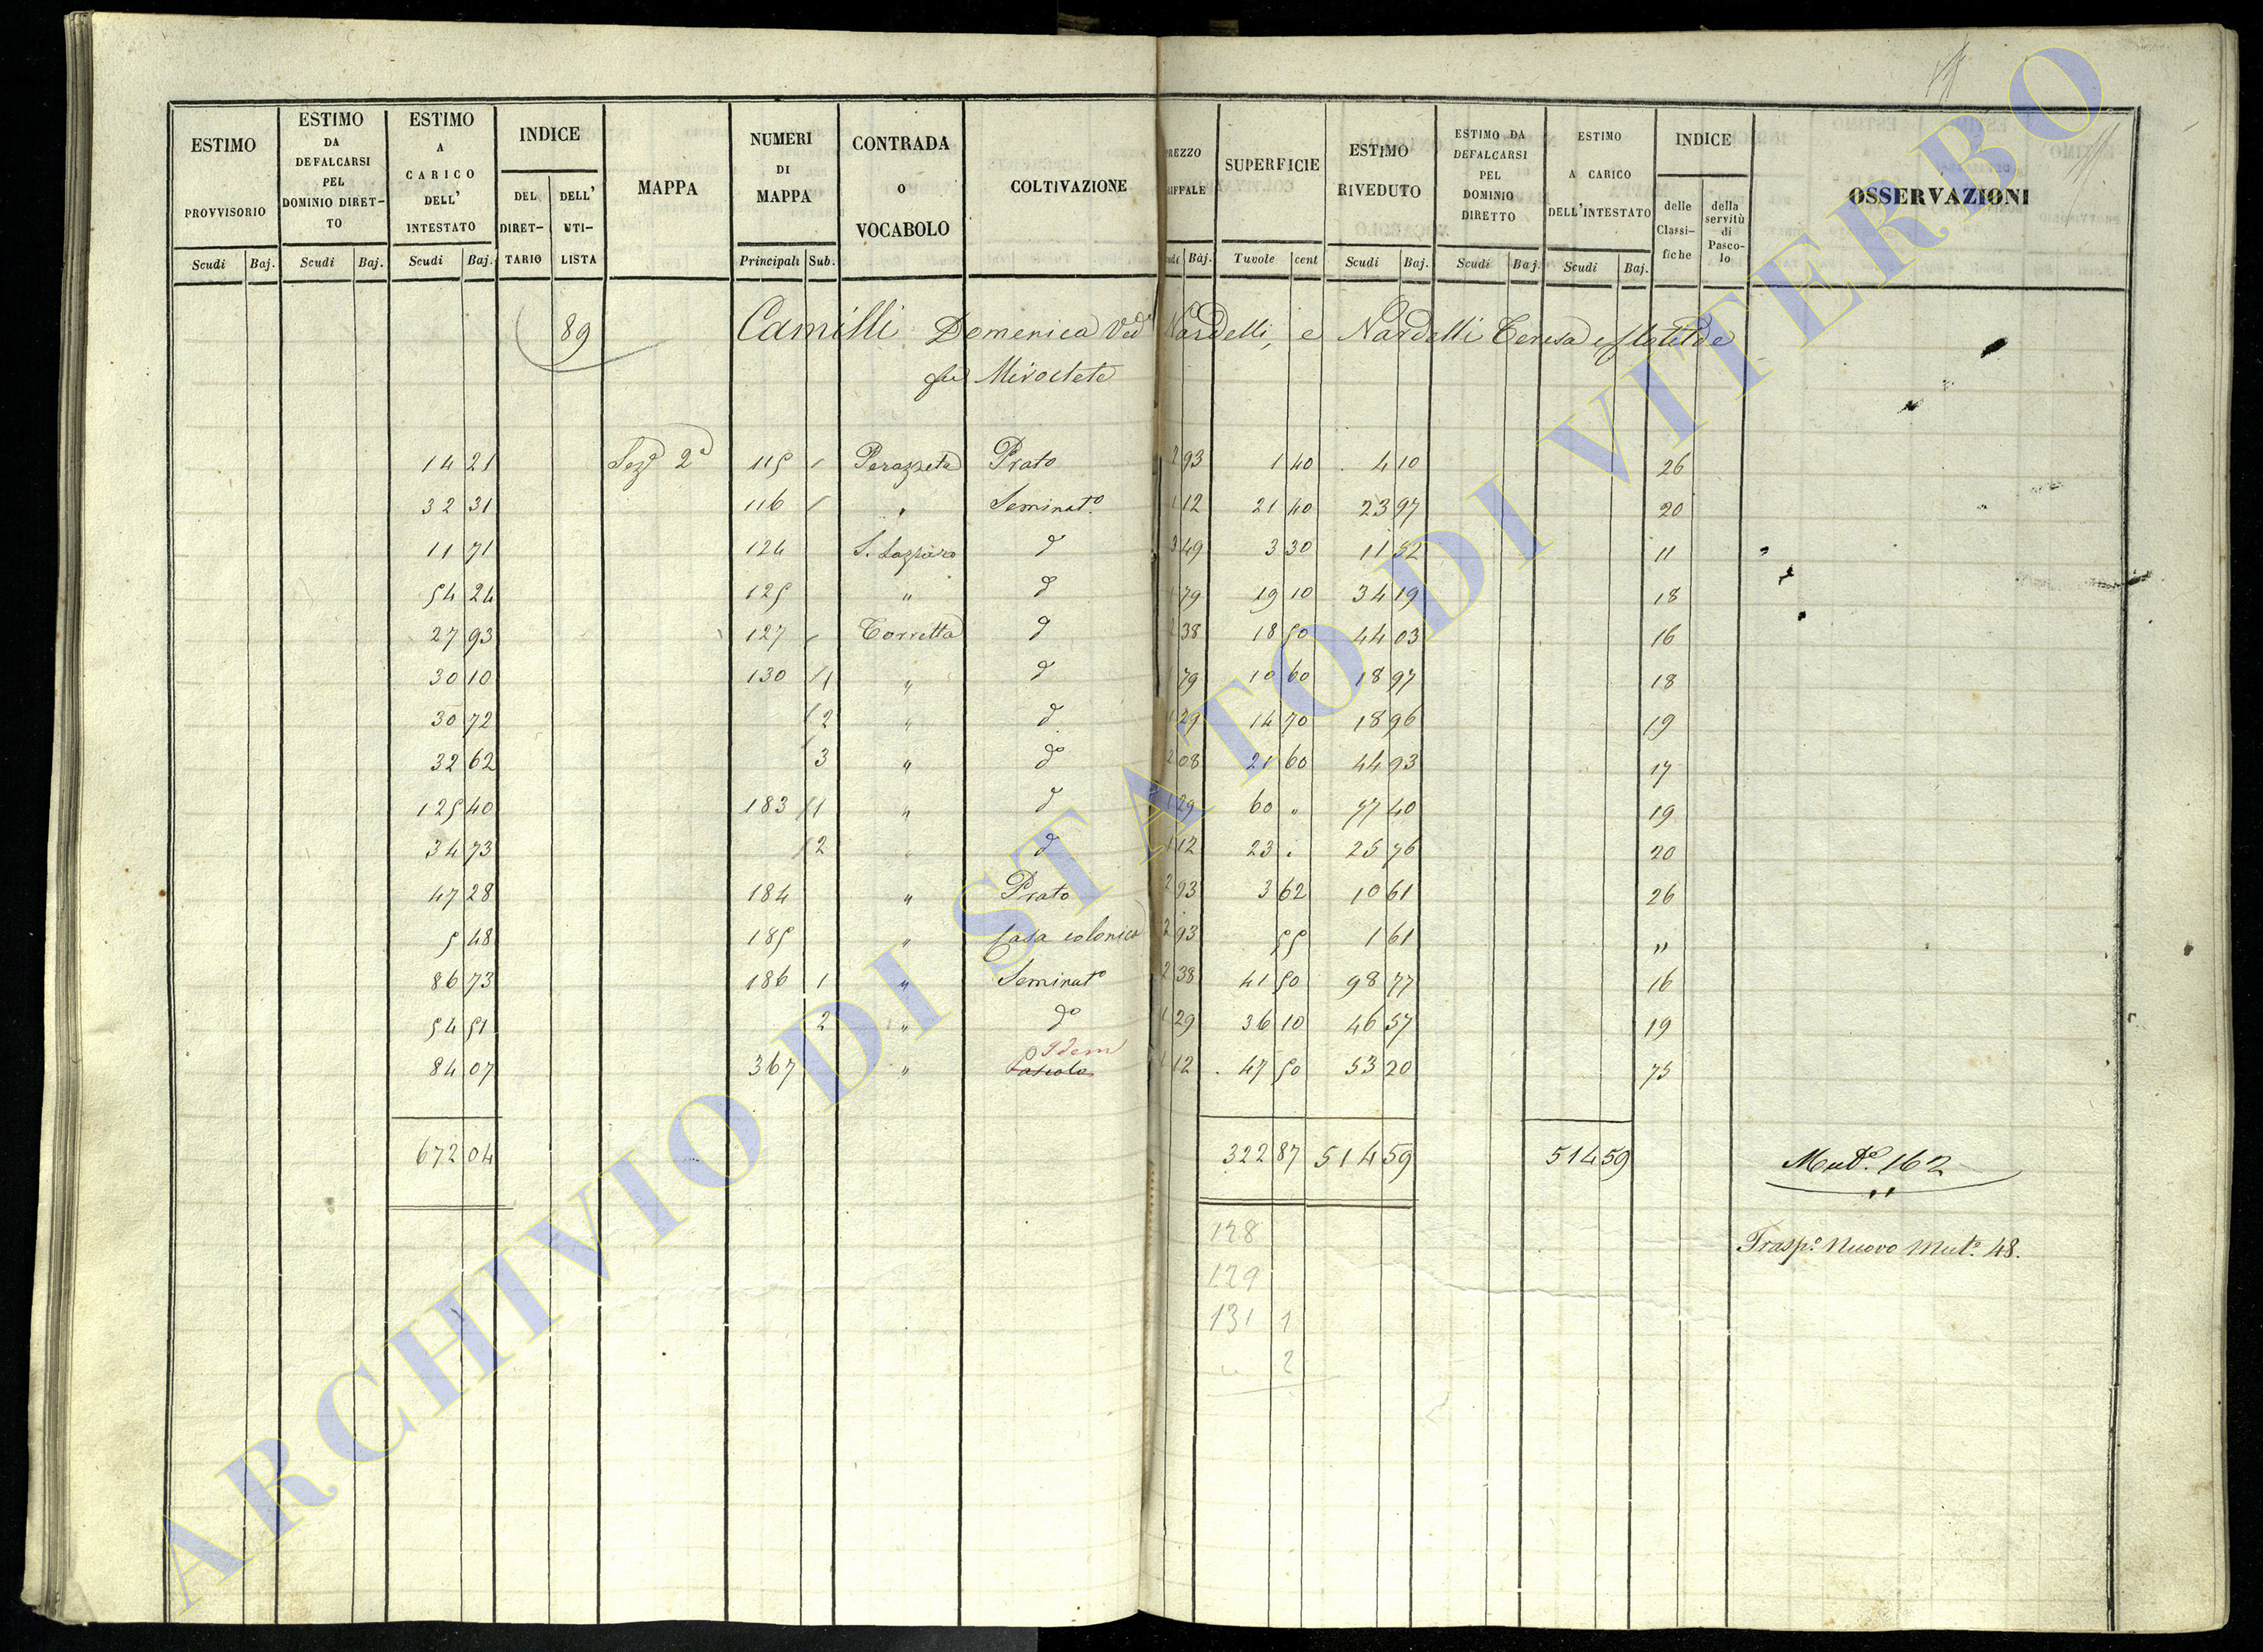 ESTIMO PROVVISORIO
ESTIMO DA DEFALCARSI PEL DOMINIO DIRETTO
ESTIMO A CARICO DELL' INTESTATO
INDICE
DEL DIRETTARIO
DELL' UTILISTA
MAPPA
NUMERI DI MAPPA
CONTRADA O VOCABOLO
COLTIVAZIONE
PREZZO RIFFALE
SUPERFICIE
ESTIMO RIVEDUTO
ESTIMO DA DEFALCARSI PEL DOMINIO DIRETTO
ESTIMO A CARICO DELL'INTESTATO
INDICE
delle Classifiche
della servitù di Pascolo
OSSERVAZIONI
Scudi Baj. Scudi Baj. Scudi Baj. Principali Sub. Baj. Tavole cent Scudi Baj. Scudi Baj. Scudi Baj.
89 Camilli Domenica Ved.ª Nardelli, e Nardelli Teresa e Clotilde
fu
14 21 Sezᵉ 2ª 115 Perazzeta Prato 2 93 1 40 4 10 26
32 31 116 " Seminatº 1 12 21 40 23 97 20
11 71 124 S. Lazzaro d 3 49 3 30 11 52 11
54 24 125 " d 1 79 19 10 34 19 18
27 93 127 Torretta d 2 38 18 50 44 03 16
30 10 130 1 " d 1 79 10 60 18 97 18
30 72 2 " d 1 29 14 70 18 96 19
32 62 3 " dº 2 08 21 60 44 93 17
125 40 183 1 " d 1 29 60 " 77 40 19
34 73 2 " d 1 12 23 " 25 76 20
47 28 184 " Prato 2 93 3 62 10 61 26
5 48 185 " Casa colonica 2 93 55 1 61 "
86 73 186 1 " Seminatº 2 38 41 50 98 77 16
54 51 2 " dº 1 29 36 10 46 57 19
Idem
84 07 367 " Pascolo 1 12 47 50 53 20 75
672 04 322 87 514 59 514 59 Mutº. 162
128
Traspº. Nuovo Mutº. 48.
129
131 1
" 2
ARCHIVIO DI STATO DI VITERBO